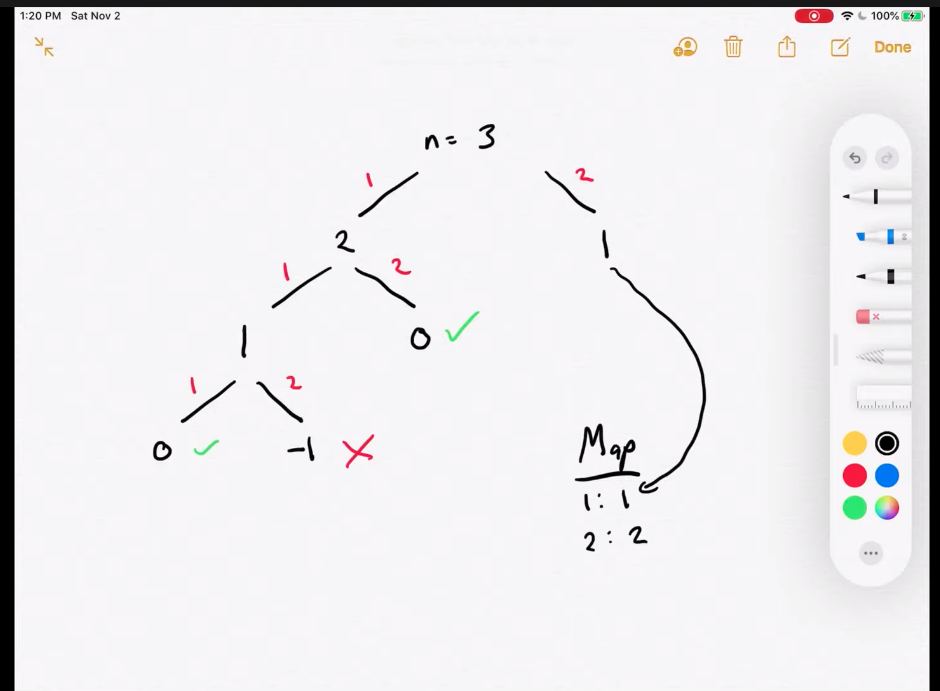 1:20 PM Sat Nov 2 100%
Done
n= 3
1 2
2 1
1 2
1 0 ✓
1 2
0 ✓ -1 X
Map
1: 1
2: 2